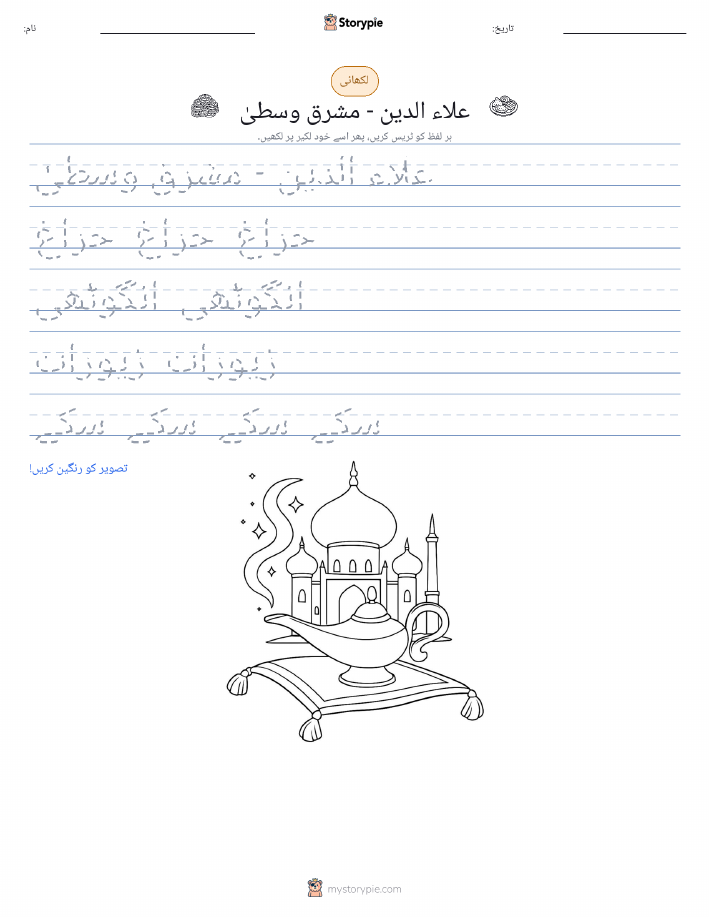 Storypie
نام:
تاریخ:
لکھائی
علاء الدین - مشرق وسطیٰ
ہر لفظ کو ٹریس کریں، پھر اسے خود لکیر پر لکھیں۔
علاء الدین - مشرق وسطیٰ
چراغ چراغ چراغ
انگوٹھی انگوٹھی
زیورات زیورات
سکے سکے سکے سکے
تصویر کو رنگین کریں!
mystorypie.com